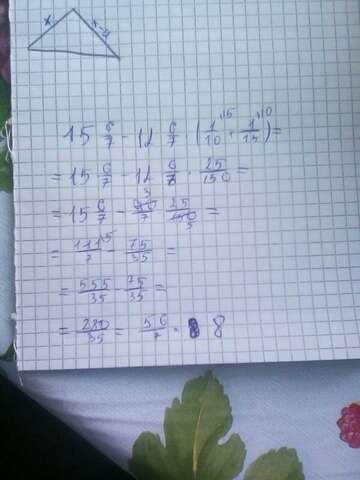 x x-4
15 6/7 - 12 6/7 · (1/10 + 1/15) =
= 15 6/7 - 12 6/7 · 25/150 =
= 15 6/7 - 90/7 25/150 =
= 111/7 - 75/35 =
= 555/35 - 75/35 =
= 280/35 = 56/7 · 8